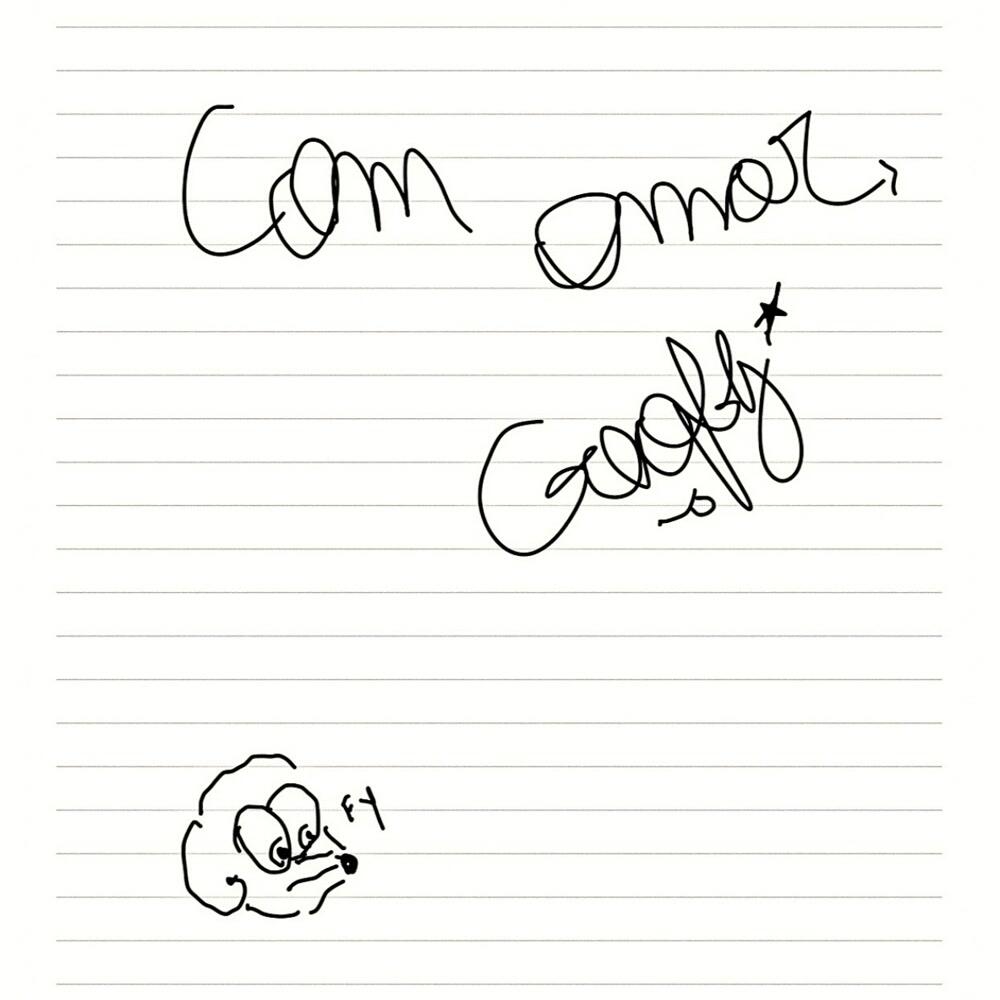 Com amor
Goofy
FY